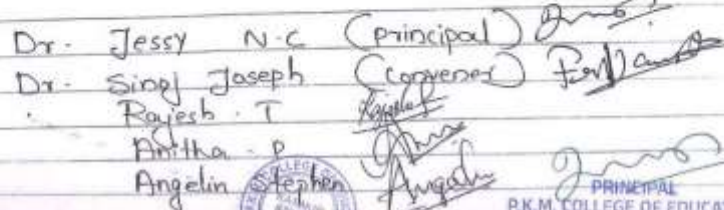 Dr. Jessy N.C (principal)
Dr. Sinoj Joseph (convener)
Rajesh . T
Anitha . P
Angelin Stephen
PRINCIPAL
P.K.M. COLLEGE OF EDUCA